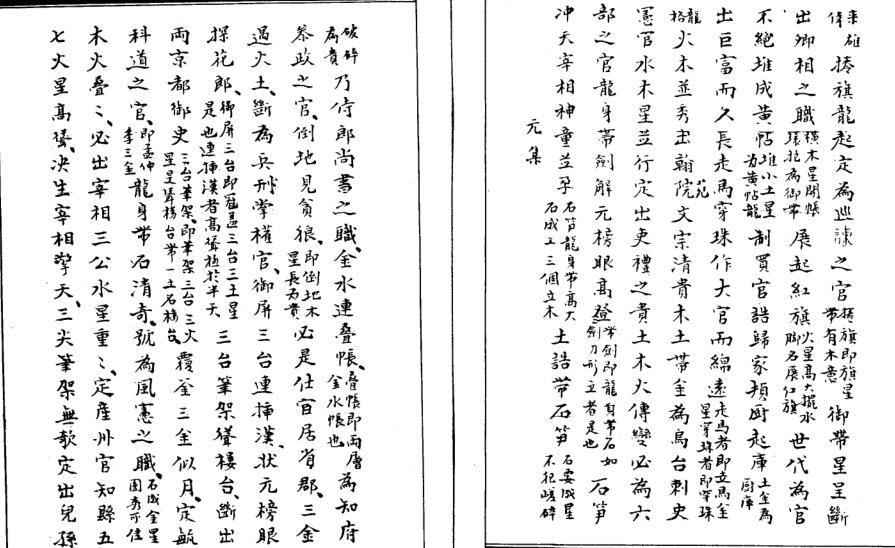 来雄偉捧旗龍起定為巡諫之官捧旗即旗星帶有木意御帶星呈斷
出卿相之職橫木星開帳環抱為御帶展起紅旗火星高大擺水腳名展红旗世代為官
不絕堆成黃帖堆小土星為黃帖龍制買官誥歸家頻厨起庫土金為厨庫
出巨富而久長走馬穿珠作大官而綿遠走馬者即立馬金星穿珠者即平珠
龍格火木並秀出翰苑文宗清貴木土帶金為烏台刺史
憲官水木星並行定出吏禮之貴土木火傳變必為六
部之官龍身帶劍解元榜眼高登帶劍即龍身帶石如劍刀形立者是也石笋
冲天宰相神童並孕石笋龍身帶高大石成工三個立木土誥帶石笋石要成星不犯嵯碎
元集
破碎為貴乃侍郎尚書之職、金水連叠帳、叠帳即両層金水帳也為知府
叅政之官、倒地見貪狼、即倒地木星長為貴必是仕官居省郡、三金
過火土、斷為兵刑掌權官、御屏三台連挿漢、状元榜眼
探花郎、御屏三台即冠盖三台三土星是也連挿漢者高聳極於半天三台筆架聳樓台、斷出
両京都御史三台筆架、即筆架三台三火星呈聳楼台帶一土石楼台、覆釜三金似月、定毓
科道之官、即孟仲季三金龍身帶石清奇、號為風憲之職、石成金星圓秀可佳
木火叠〻、必出宰相三公水星重〻、定産州官知縣五
七火星高聳、决生宰相擎天、三尖筆架無欹定出兒孫